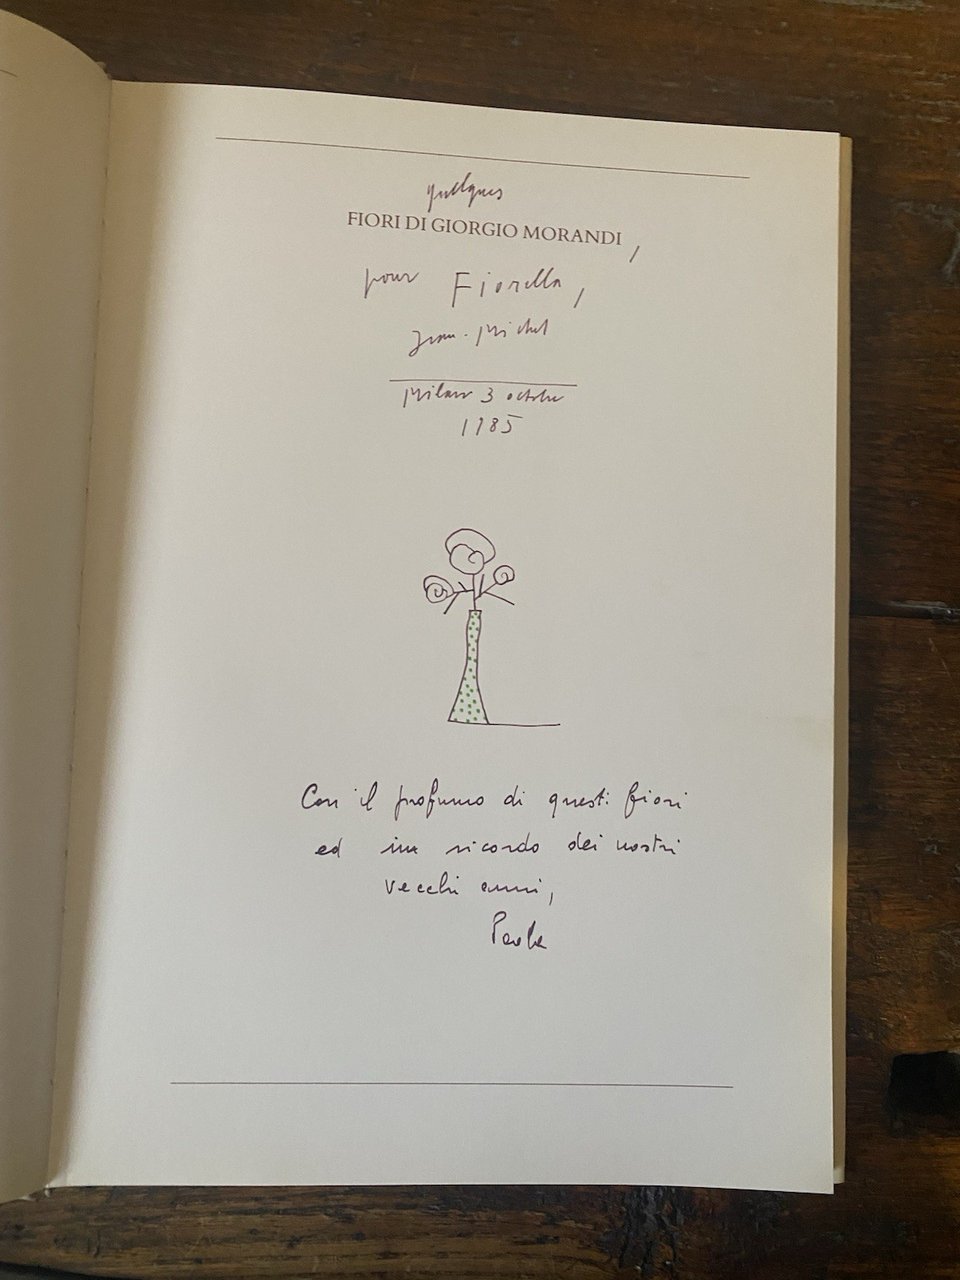 quelques
FIORI DI GIORGIO MORANDI,
pour Fiorella,
Jean-Michel
Milan 3 octobre
1985
Con il profumo di questi fiori
ed un ricordo dei nostri
vecchi anni,
Paola